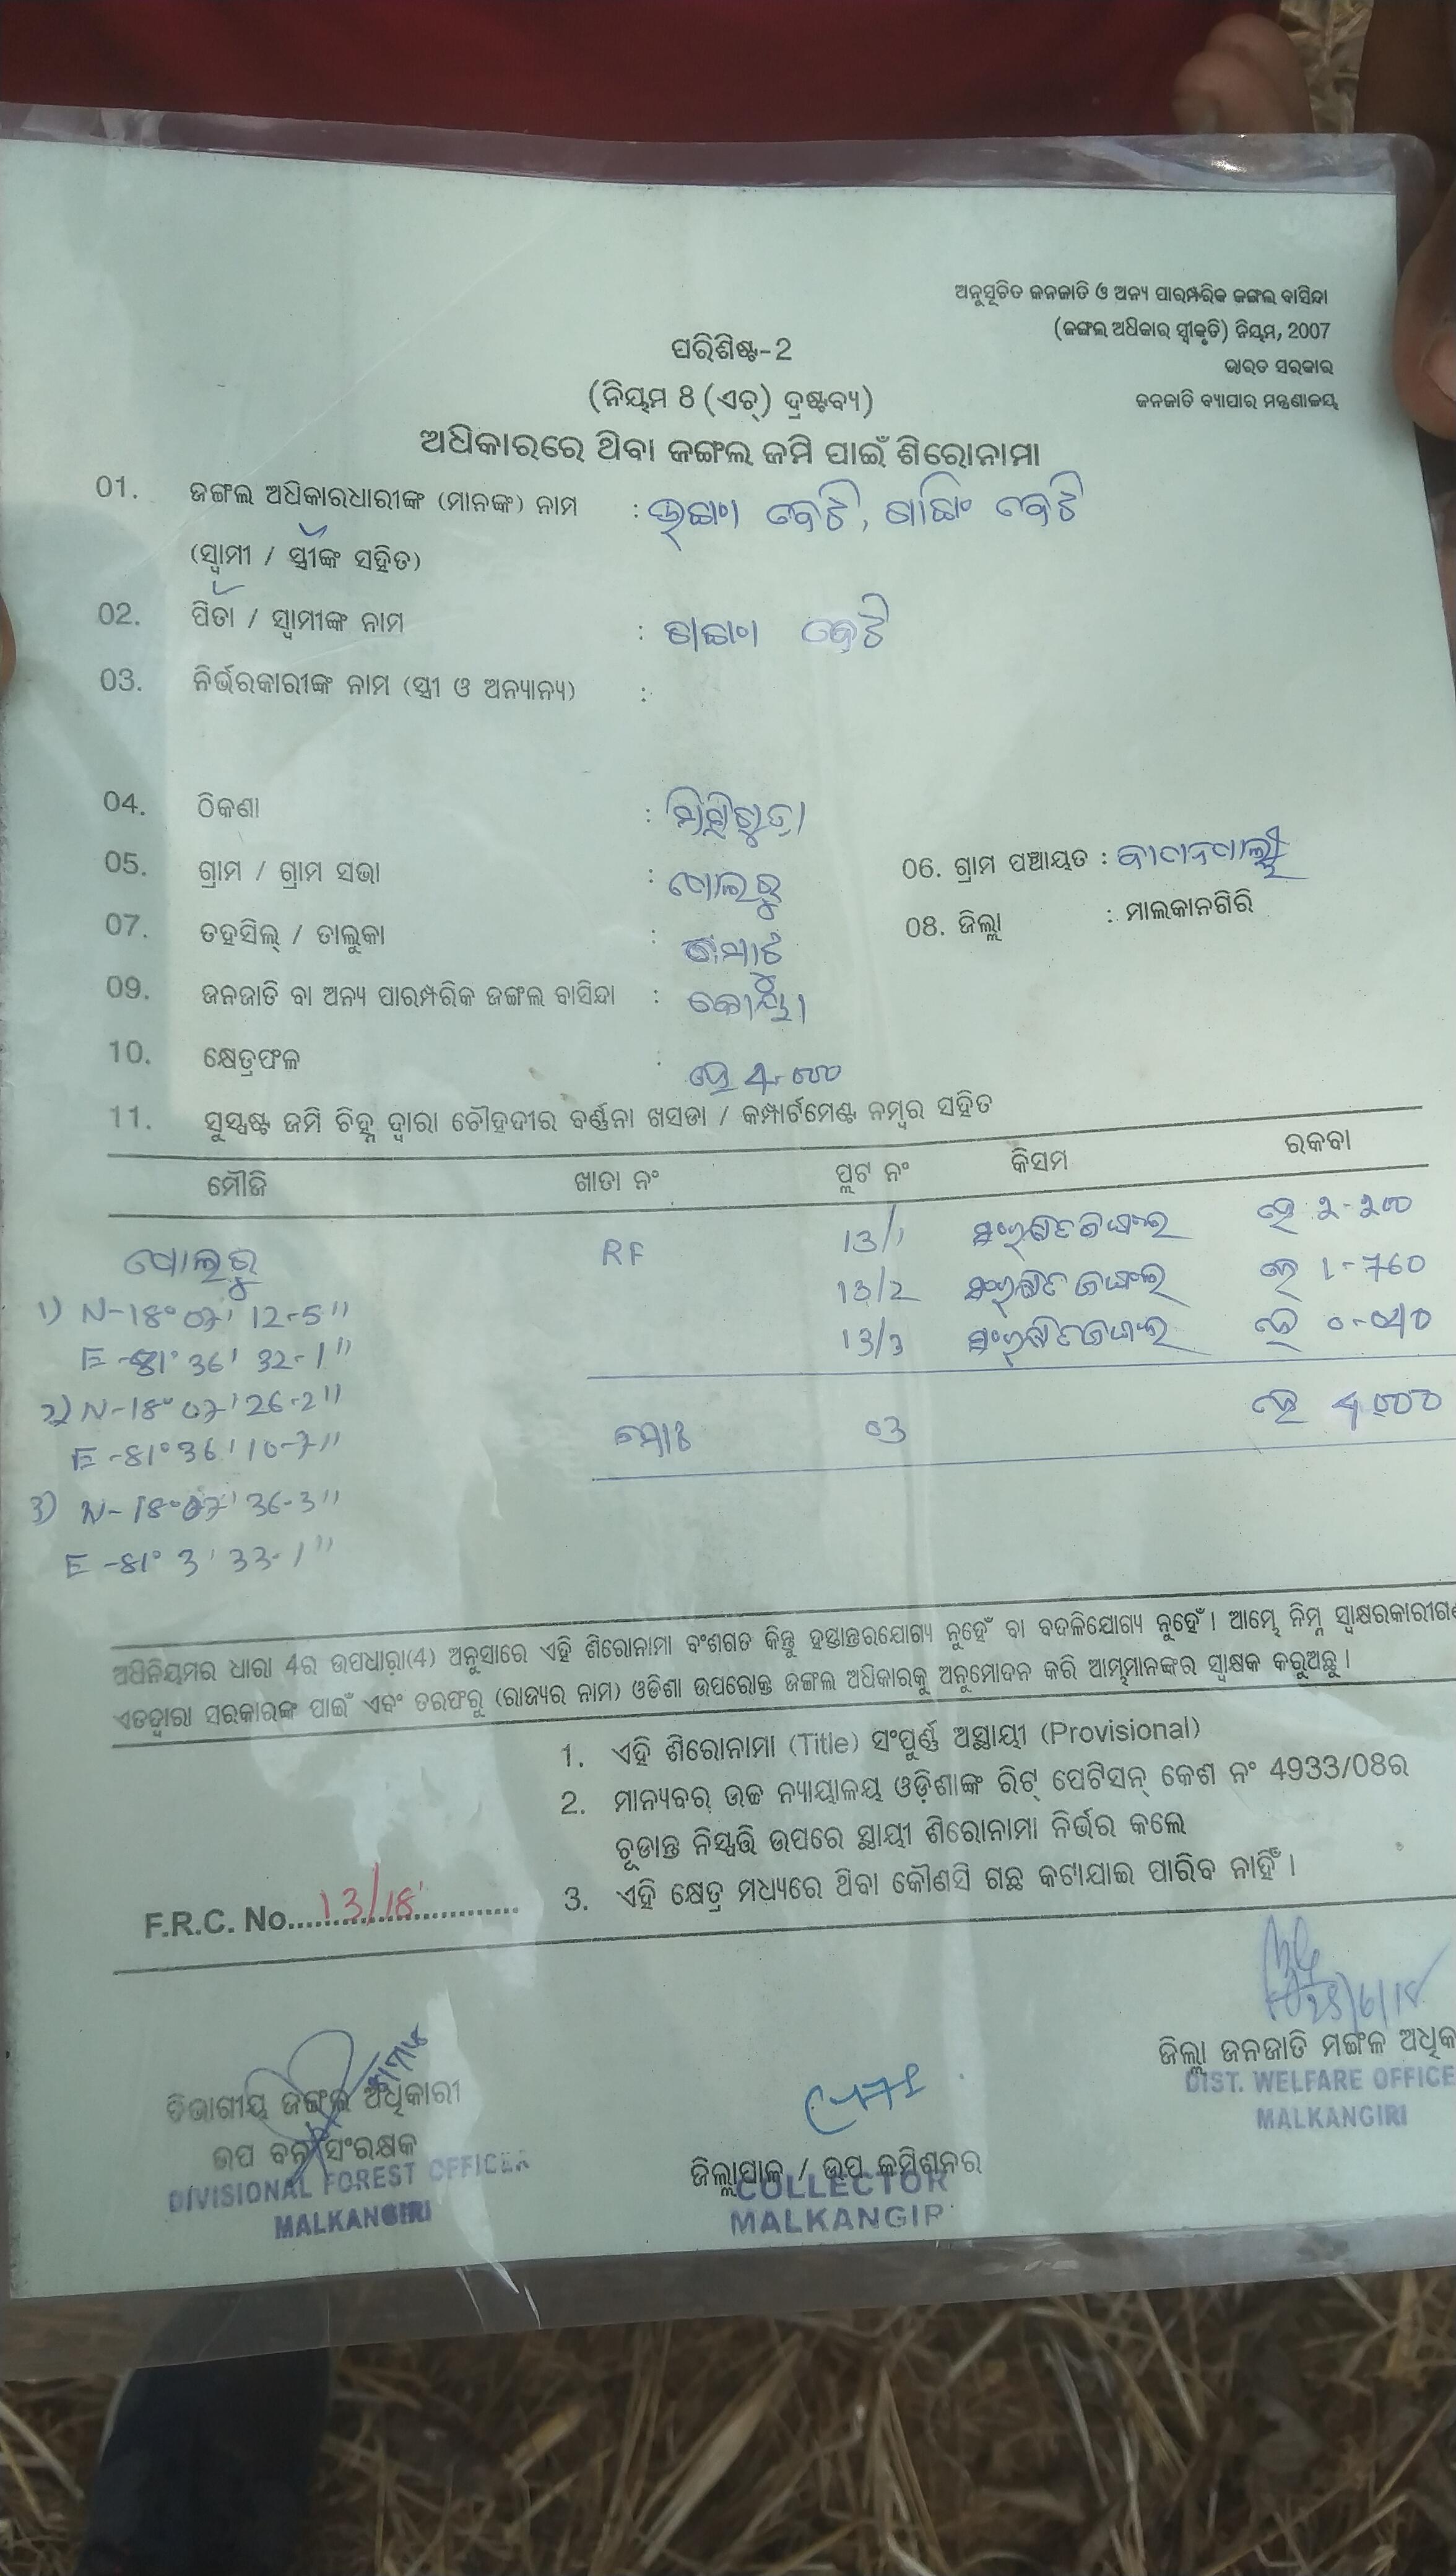 ଅନୁସୂଚିତ ଜନଜାତି ଓ ଅନ୍ୟ ପାରମ୍ପରିକ ଜଙ୍ଗଲ ବାସିନ୍ଦା
(ଜଙ୍ଗଲ ଅଧିକାର ସ୍ୱୀକୃତି) ନିୟମ, 2007
ଭାରତ ସରକାର
ଜନଜାତି ବ୍ୟାପାର ମନ୍ତ୍ରଣାଳୟ
ପରିଶିଷ୍ଟ-2
(ନିୟମ 8 (ଏଚ୍) ଦ୍ରଷ୍ଟବ୍ୟ)
ଅଧିକାରରେ ଥିବା ଜଙ୍ଗଲ ଜମି ପାଇଁ ଶିରୋନାମା
01. ଜଙ୍ଗଲ ଅଧିକାରଧାରୀଙ୍କ (ମାନଙ୍କ) ନାମ :
(ସ୍ୱାମୀ / ସ୍ତ୍ରୀଙ୍କ ସହିତ)
02. ପିତା / ସ୍ୱାମୀଙ୍କ ନାମ :
03. ନିର୍ଭରକାରୀଙ୍କ ନାମ (ସ୍ତ୍ରୀ ଓ ଅନ୍ୟାନ୍ୟ) :
04. ଠିକଣା :
05. ଗ୍ରାମ / ଗ୍ରାମ ସଭା : ପୋଲରୁ 06. ଗ୍ରାମ ପଞ୍ଚାୟତ :
07. ତହସିଲ୍ / ତାଲୁକା : ମୋଟୁ 08. ଜିଲ୍ଲା : ମାଲକାନଗିରି
09. ଜନଜାତି ବା ଅନ୍ୟ ପାରମ୍ପରିକ ଜଙ୍ଗଲ ବାସିନ୍ଦା : କୋୟା
10. କ୍ଷେତ୍ରଫଳ : ହେ 4-000
11. ସୁସ୍ପଷ୍ଟ ଜମି ଚିହ୍ନ ଦ୍ୱାରା ଚୌହଦୀର ବର୍ଣ୍ଣନା ଖସଡା / କମ୍ପାର୍ଟମେଣ୍ଟ ନମ୍ବର ସହିତ
ମୌଜି ଖାତା ନଂ ପ୍ଲଟ ନଂ କିସମ ରକବା
ପୋଲରୁ RF 13/1 ସଂରକ୍ଷିତ ଜଙ୍ଗଲ ହେ 2-200
13/2 ସଂରକ୍ଷିତ ଜଙ୍ଗଲ ହେ 1-760
13/3 ସଂରକ୍ଷିତ ଜଙ୍ଗଲ ହେ 0-040
1) N-18° 07' 12-5"
E-81° 36' 32-1"
2) N-18° 07' 26-2"
E-81° 36' 10-7"
ମୋଟ 03 ହେ 4.000
3) N-18° 07' 36-3"
E-81° 3' 33-1"
ଅଧିନିୟମର ଧାରା 4ର ଉପଧାରା(4) ଅନୁସାରେ ଏହି ଶିରୋନାମା ବଂଶଗତ କିନ୍ତୁ ହସ୍ତାନ୍ତରଯୋଗ୍ୟ ନୁହେଁ ବା ବଦଳିଯୋଗ୍ୟ ନୁହେଁ। ଆମ୍ଭେ ନିମ୍ନ ସ୍ୱାକ୍ଷରକାରୀଗଣ
ଏତଦ୍ୱାରା ସରକାରଙ୍କ ପାଇଁ ଏବଂ ତରଫରୁ (ରାଜ୍ୟର ନାମ) ଓଡିଶା ଉପରୋକ୍ତ ଜଙ୍ଗଲ ଅଧିକାରକୁ ଅନୁମୋଦନ କରି ଆମ୍ଭମାନଙ୍କର ସ୍ୱାକ୍ଷକ କରୁଅଛୁ।
1. ଏହି ଶିରୋନାମା (Title) ସଂପୁର୍ଣ୍ଣ ଅସ୍ଥାୟୀ (Provisional)
2. ମାନ୍ୟବର ଉଚ୍ଚ ନ୍ୟାୟାଳୟ ଓଡ଼ିଶାଙ୍କ ରିଟ୍ ପେଟିସନ୍ କେଶ ନଂ 4933/08ର
ଚୂଡାନ୍ତ ନିସ୍ପତ୍ତି ଉପରେ ସ୍ଥାୟୀ ଶିରୋନାମା ନିର୍ଭର କଲେ
3. ଏହି କ୍ଷେତ୍ର ମଧ୍ୟରେ ଥିବା କୌଣସି ଗଛ କଟାଯାଇ ପାରିବ ନାହିଁ।
F.R.C. No. 13/18
25/6/18
ଜିଲ୍ଲା ଜନଜାତି ମଙ୍ଗଳ ଅଧିକା
DIST. WELFARE OFFICE
MALKANGIRI
ଡିଭାଗୀୟ ଜଙ୍ଗଲ ଅଧିକାରୀ
ଉପ ବନ ସଂରକ୍ଷକ
DIVISIONAL FOREST OFFICER
MALKANGIRI
ଜିଲ୍ଲାପାଳ / ଉପ କମିଶନର
COLLECTOR
MALKANGIR